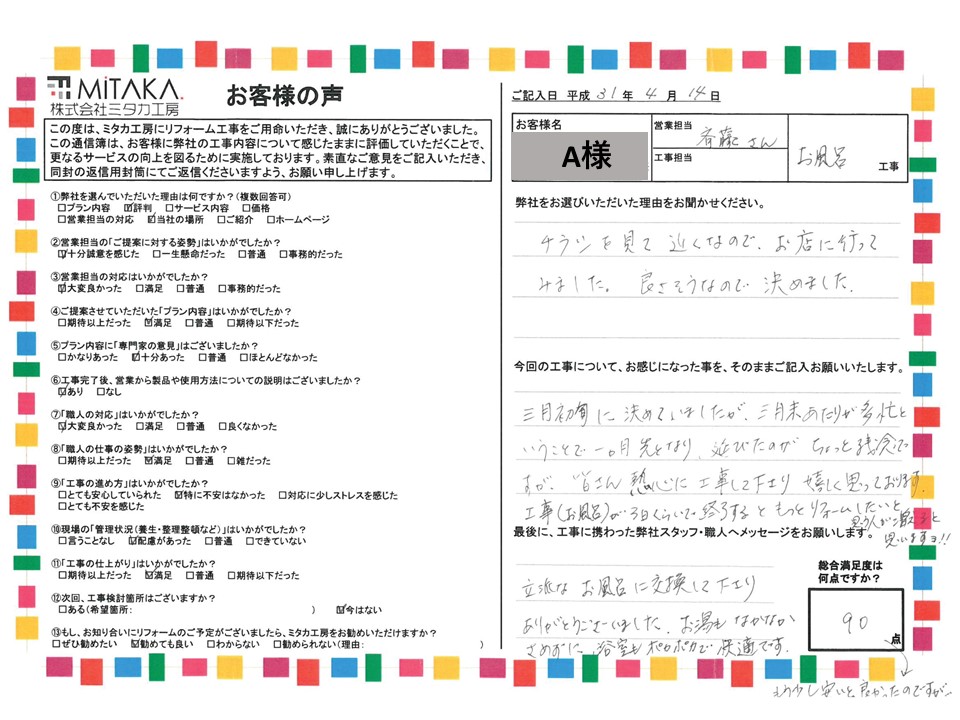 MiTAKA.
株式会社ミタカ工房
お客様の声
この度は、ミタカ工房にリフォーム工事をご用命いただき、誠にありがとうございました。
この通信簿は、お客様に弊社の工事内容について感じたままに評価していただくことで、
更なるサービスの向上を図るために実施しております。素直なご意見をご記入いただき、
同封の返信用封筒にてご返信くださいますよう、お願い申し上げます。
①弊社を選んでいただいた理由は何ですか?(複数回答可)
□プラン内容 ☑評判 □サービス内容 □価格
□営業担当の対応 ☑当社の場所 □ご紹介 □ホームページ
②営業担当の「ご提案に対する姿勢」はいかがでしたか?
☑十分誠意を感じた □一生懸命だった □普通 □事務的だった
③営業担当の対応はいかがでしたか?
☑大変良かった □満足 □普通 □事務的だった
④ご提案させていただいた「プラン内容」はいかがでしたか?
□期待以上だった ☑満足 □普通 □期待以下だった
⑤プラン内容に「専門家の意見」はございましたか?
□かなりあった ☑十分あった □普通 □ほとんどなかった
⑥工事完了後、営業から製品や使用方法についての説明はございましたか?
☑あり □なし
⑦「職人の対応」はいかがでしたか?
☑大変良かった □満足 □普通 □良くなかった
⑧「職人の仕事の姿勢」はいかがでしたか?
□期待以上だった ☑満足 □普通 □雑だった
⑨「工事の進め方」はいかがでしたか?
□とても安心していられた ☑特に不安はなかった □対応に少しストレスを感じた
□とても不安を感じた
⑩現場の「管理状況(養生・整理整頓など)」はいかがでしたか?
□言うことなし ☑配慮があった □普通 □できていない
⑪「工事の仕上がり」はいかがでしたか?
□期待以上だった ☑満足 □普通 □期待以下だった
⑫次回、工事検討箇所はございますか?
□ある(希望箇所: ) ☑今はない
⑬もし、お知り合いにリフォームのご予定がございましたら、ミタカ工房をお勧めいただけますか?
□ぜひ勧めたい ☑勧めても良い □わからない □勧められない(理由: )
ご記入日 平成 31 年 4 月 14 日
お客様名
A様
営業担当 斉藤さん
工事担当
お風呂 工事
弊社をお選びいただいた理由をお聞かせください。
チラシを見て 近くなので、お店に行って
みました。 良さそうなので 決めました。
今回の工事について、お感じになった事を、そのままご記入お願いいたします。
三月初旬に決めていましたが、三月末あたりが多忙と
いうことで一ヶ月先となり、延びたのが ちょっと残念で
すが、皆さん 熱心に工事して下さり 嬉しく思っております。
工事(お風呂)が3日くらいで終了すると もっとリフォームしたいと
思う人がいると
思いますョ!!
最後に、工事に携わった弊社スタッフ・職人へメッセージをお願いします。
立派な お風呂に交換して下さり
ありがとうございました。お湯も なかなか
さめずに、浴室もポカポカで快適です。
総合満足度は
何点ですか?
90 点
もう少し安いと良かったのですが…